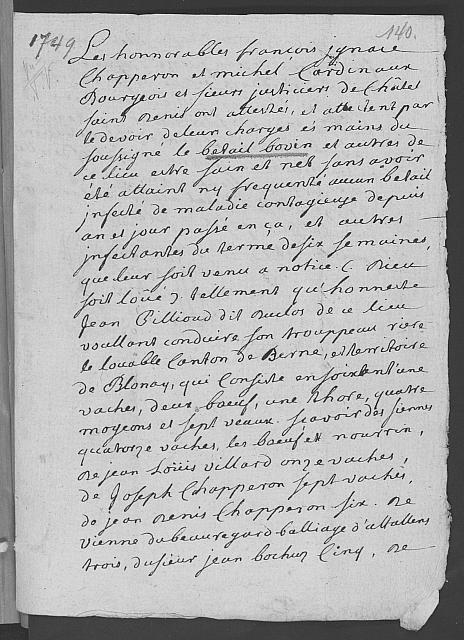 1749.
140.
Les honnorables françois ignace
Chapperon et michel Cardinaux
Bourgeois et sieurs justiciers de Châtel
saint Denis ont attestés, et attestent par
le devoir de leur charges és mains du
soussigné le betail bovin et autres de
ce lieu estre sain et net sans avoir
été attaint ny frequenté aucun betail
infecté de maladie contagieuse depuis
an et jour passé en ça, et autres
infectantes du terme de six semaines,
que leur soit venu a notice (. Dieu
soit loüé ). tellement qu'honneste
Jean Pillioud dit Duclos de ce lieu
voullant conduire son trouppeau riere
le louable Canton de Berne, et territoire
de Blonay, qui Consiste en soixant'une
vaches, deux bœuf, une thore, quatre
mogeons et sept veaux. scavoir des siennes
quatorze vaches, les bœuf et nourrin,
De jean Loüis villard onze vaches,
de Joseph Chapperon sept vaches,
de jean Denis Chapperon six. De
vienne du beauregard balliage d'attallens
trois, du sieur jean bochuz Cinq, De